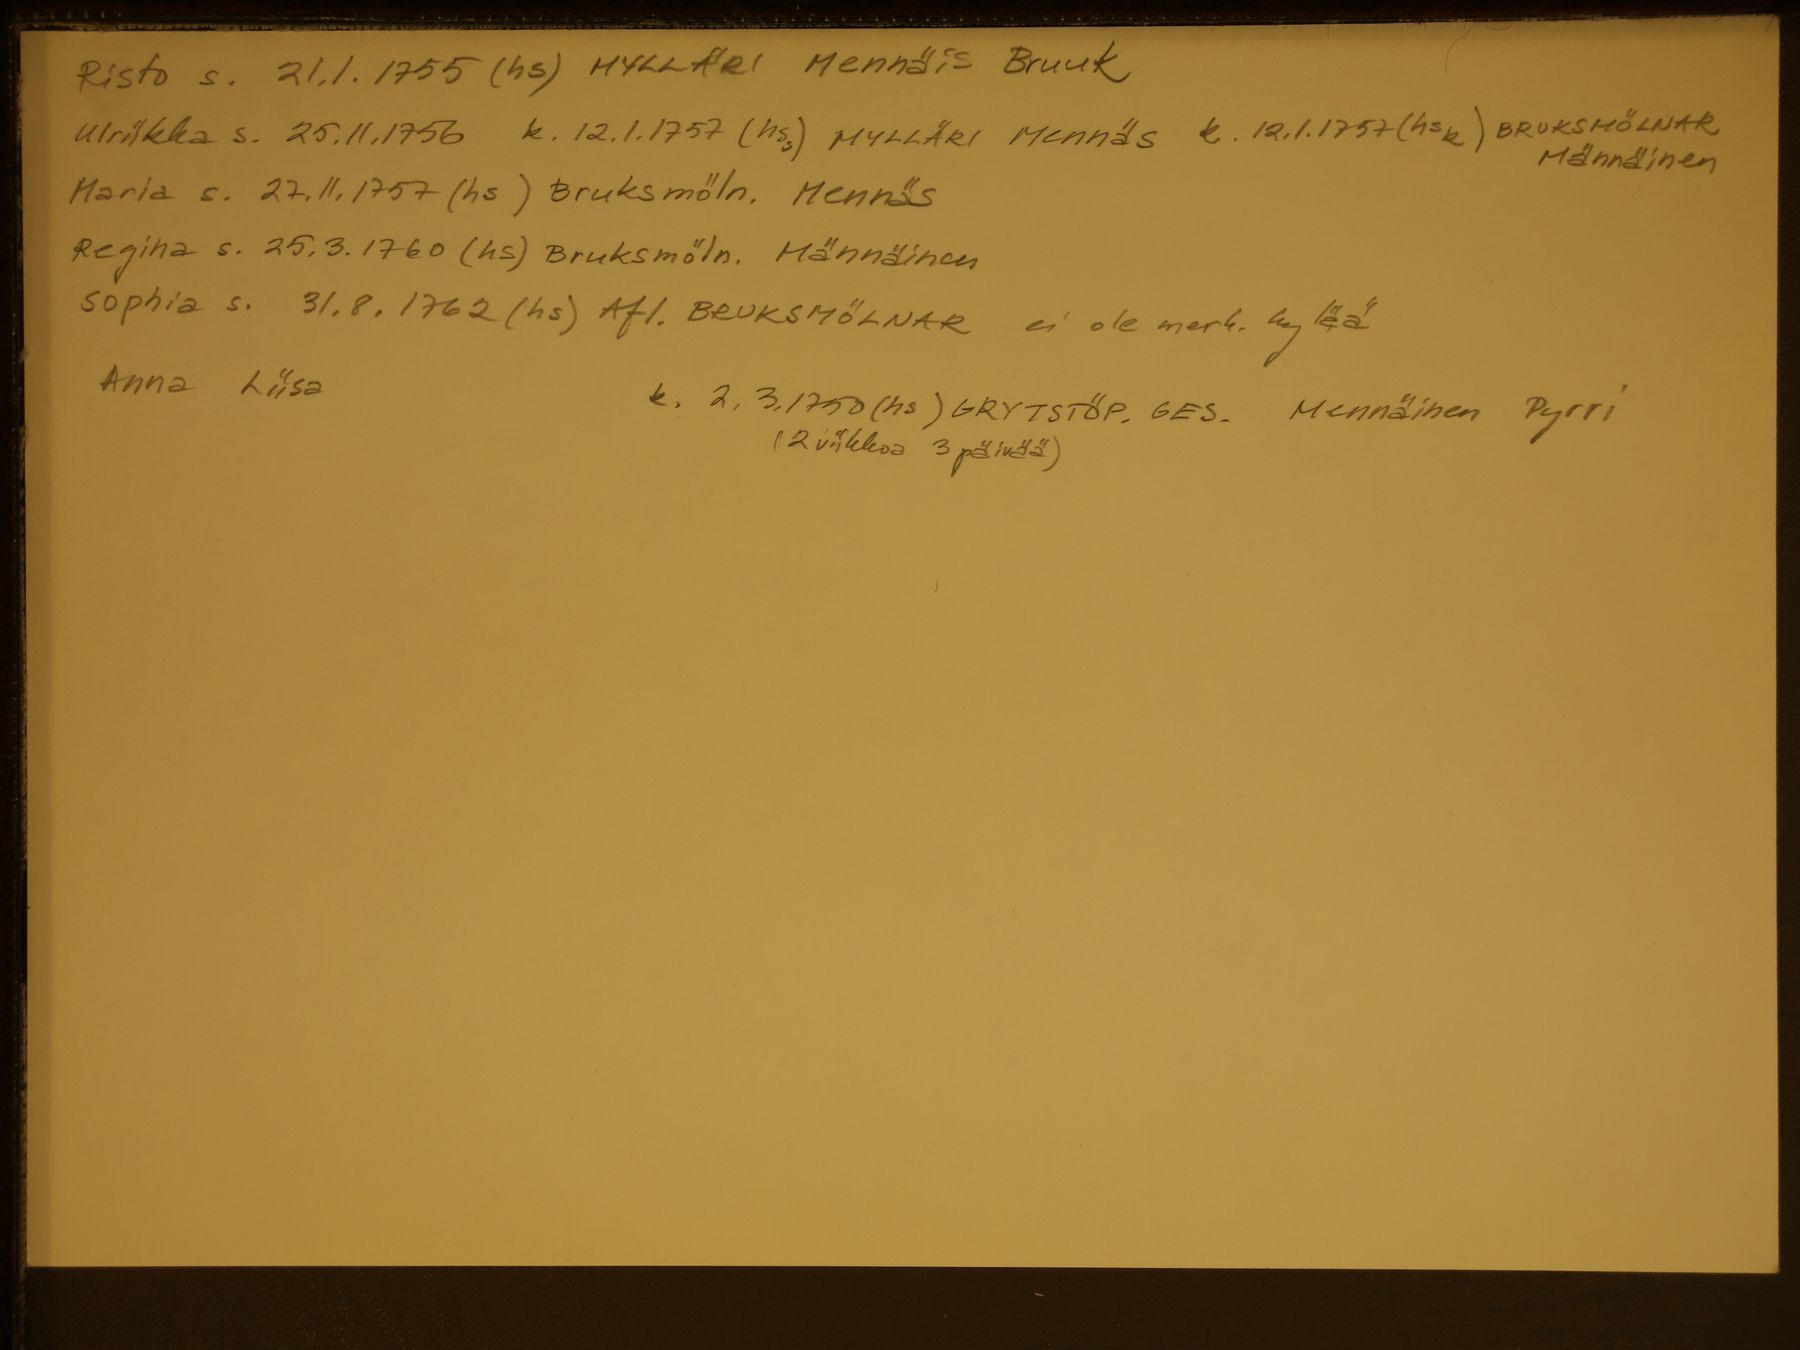 Risto s. 21.1.1755 (hs) MYLLÄRI Mennäis Bruuk
Ulriikka s. 25.11.1756 k. 12.1.1757 (hss) MYLLÄRI Mennäs k. 12.1.1757 (hsk) BRUKSMÖLNAR
Männäinen
Maria s. 27.11.1757 (hs) Bruksmöln. Mennäs
Regina s. 25.3.1760 (hs) Bruksmöln. Männäinen
Sophia s. 31.8.1762 (hs) Afl. BRUKSMÖLNAR ei ole merk. kylää
Anna Liisa k. 2.3.1750 (hs) GRYTSTÖP. GES. Mennäinen Pyrri
(2 viikkoa 3 päivää)